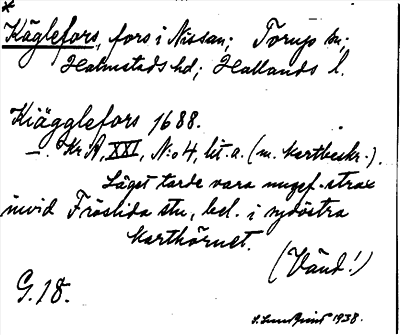 *
Käglefors, fors i Nissan; Torup sn;
Halmstads hd; Hallands l.
Kiägglefors 1688.
—. Kr. A, XXI, N:o 4, lit. a. (m. kartbeskr.).
Läget torde vara ungef. strax
invid Fröslida stn, bel. i sydöstra
karthörnet.
(Vänd!)
G. 18.
S. Lundqvist 1938.